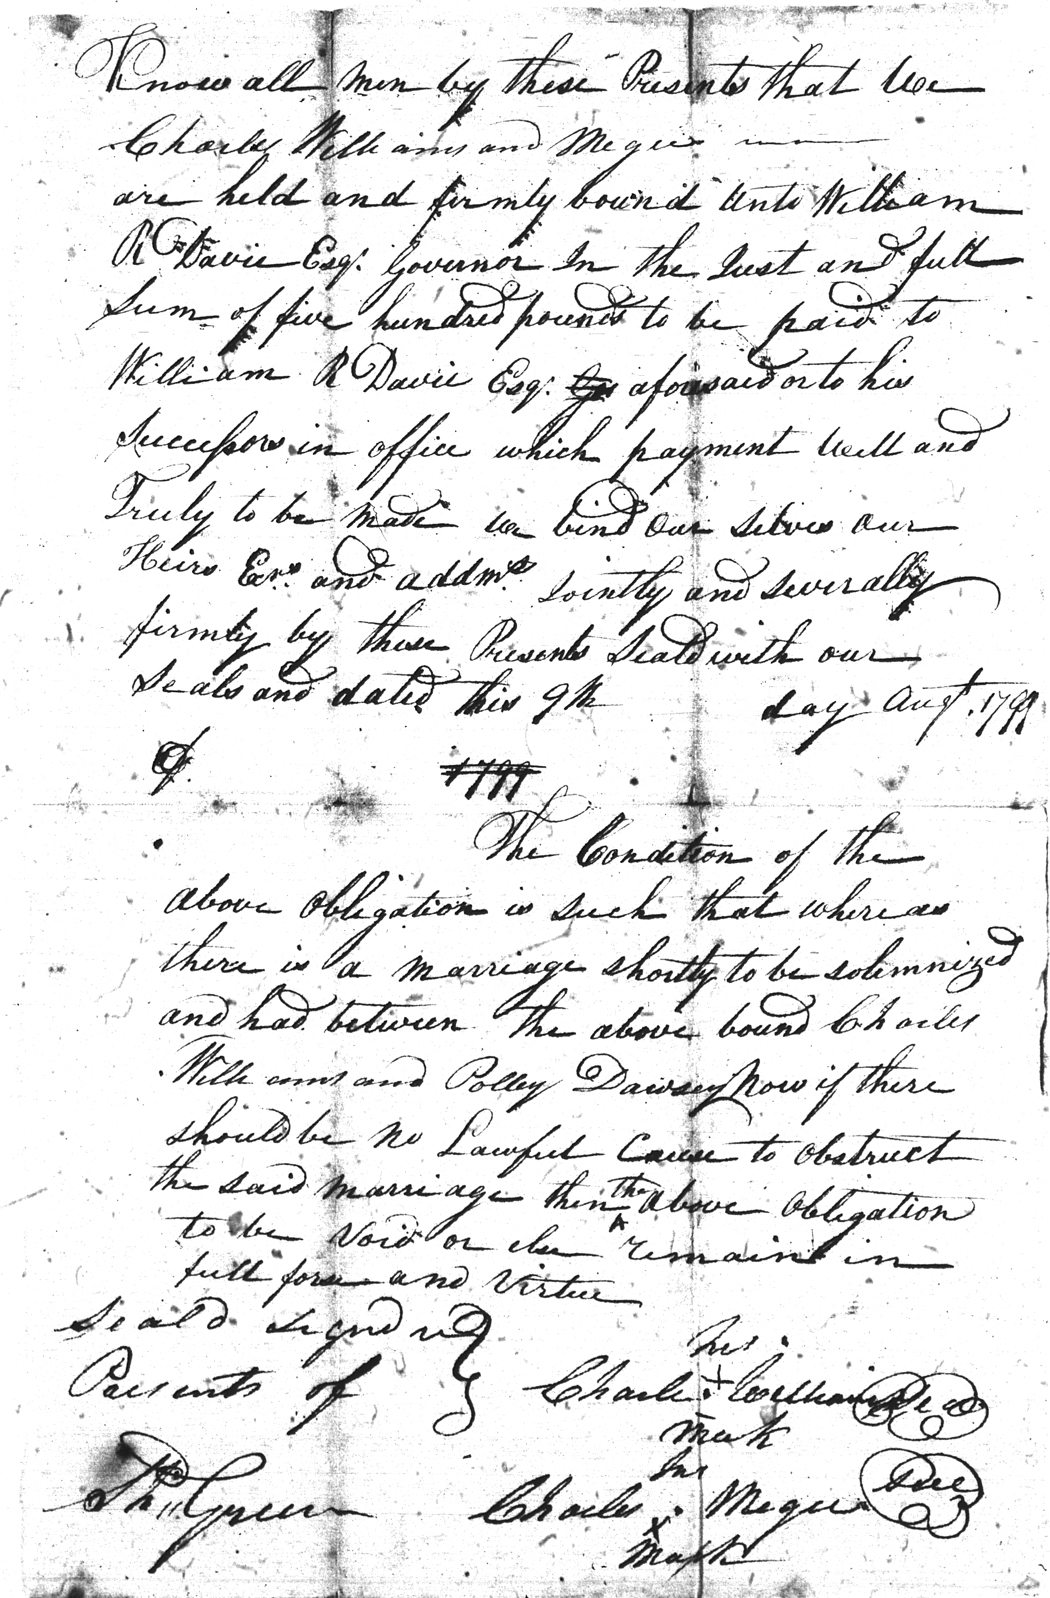 Know all men by these Presents that We
Charles Williams and Megee
are held and firmly bound unto William
R Davie Esqr. Governor In the Just and full
Sum of five hundred pounds to be paid to
William R Davie Esqr. aforesaid or to his
Successors in office which payment well and
Truly to be made we bind our selves our
Heirs Exrs. and addmrs. Jointly and severally
firmly by these Presents Seald with our
Seals and dated this 9th day Augt. 1799
1799
The Condition of the
above obligation is such that whereas
there is a marriage shortly to be solemnized
and had between the above bound Charles
Williams and Polley Dawsey Now if there
should be no Lawful Cause to obstruct
the said marriage then the above obligation
to be Void or else remain in
full force and Virtue
Seald Signd
Presents of
his
Charles + Williams Seal
mark
his
Charles x Megee Seal
mark
Th Green